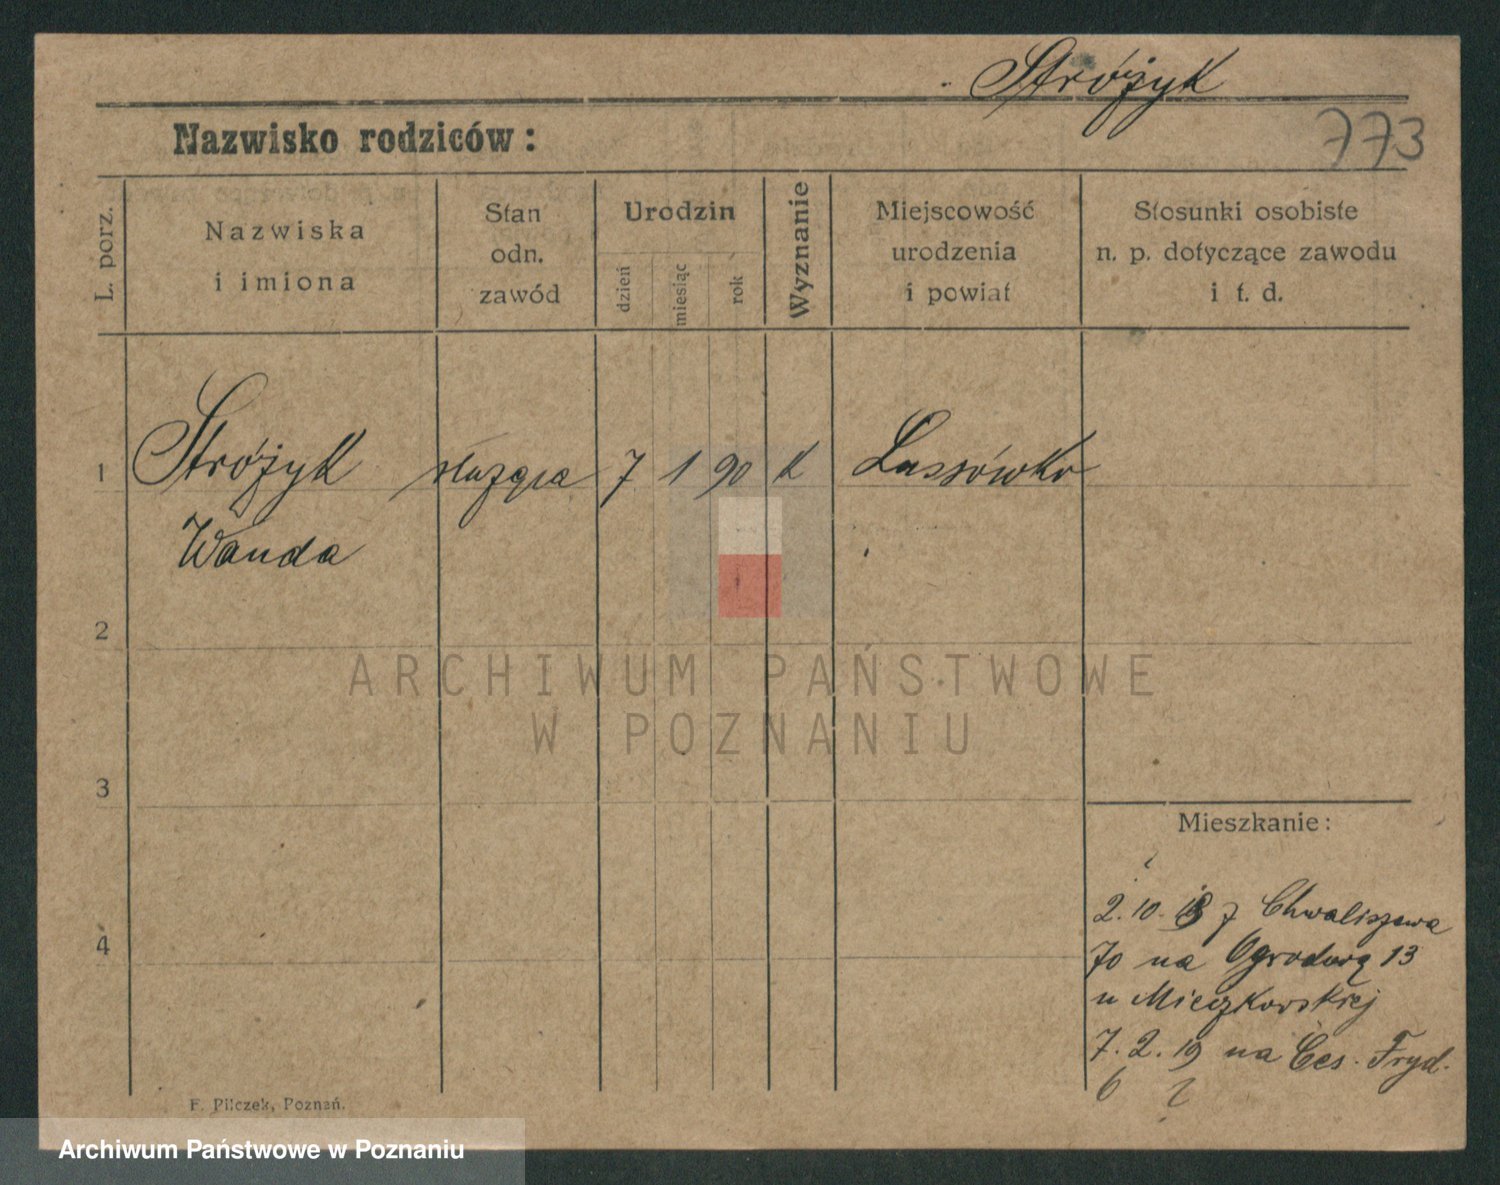 Stróżyk
773
Nazwisko rodziców:
L. porz.
Nazwiska
i imiona
Stan
odn.
zawód
Urodzin
dzień
miesiąc
rok
Wyznanie
Miejscowość
urodzenia
i powiat
Stosunki osobiste
n. p. dotyczące zawodu
i t. d.
1 Stróżyk służąca 7 1 90 k Lussówko
Wanda
2
ARCHIWUM PAŃSTWOWE
W POZNANIU
3
Mieszkanie:
4
2. 10. 18 z Chwaliszewa
70 na Ogrodową 13
u Mieczkowskiej
7. 2. 19 na Ces. Fryd.
6
F. Pilczek, Poznań.
Archiwum Państwowe w Poznaniu